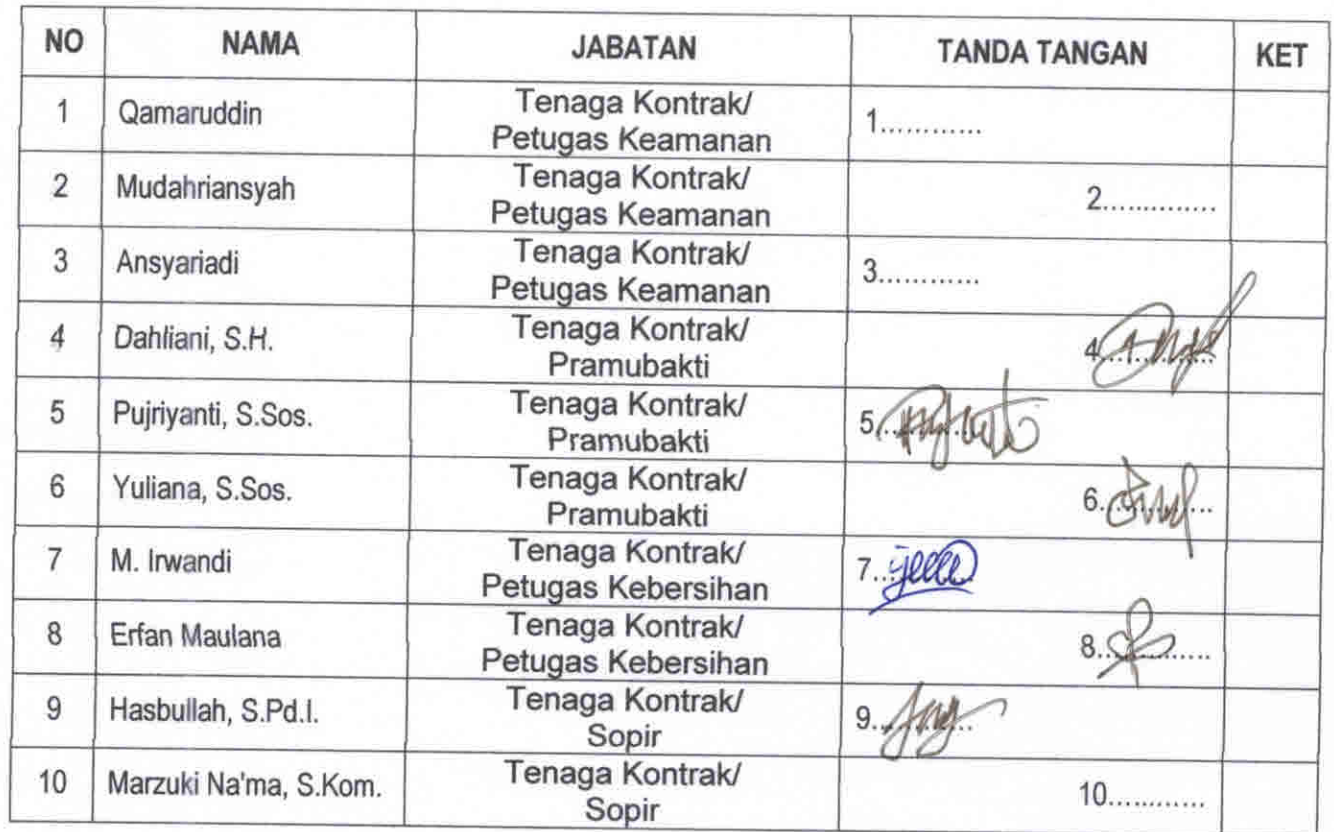 NO NAMA JABATAN TANDA TANGAN KET
1 Qamaruddin Tenaga Kontrak/
Petugas Keamanan 1............
2 Mudahriansyah Tenaga Kontrak/
Petugas Keamanan 2..............
3 Ansyariadi Tenaga Kontrak/
Petugas Keamanan 3............
4 Dahliani, S.H. Tenaga Kontrak/
Pramubakti 4..............
5 Pujriyanti, S.Sos. Tenaga Kontrak/
Pramubakti 5............
6 Yuliana, S.Sos. Tenaga Kontrak/
Pramubakti 6..............
7 M. Irwandi Tenaga Kontrak/
Petugas Kebersihan 7............
8 Erfan Maulana Tenaga Kontrak/
Petugas Kebersihan 8..............
9 Hasbullah, S.Pd.I. Tenaga Kontrak/
Sopir 9............
10 Marzuki Na'ma, S.Kom. Tenaga Kontrak/
Sopir 10............